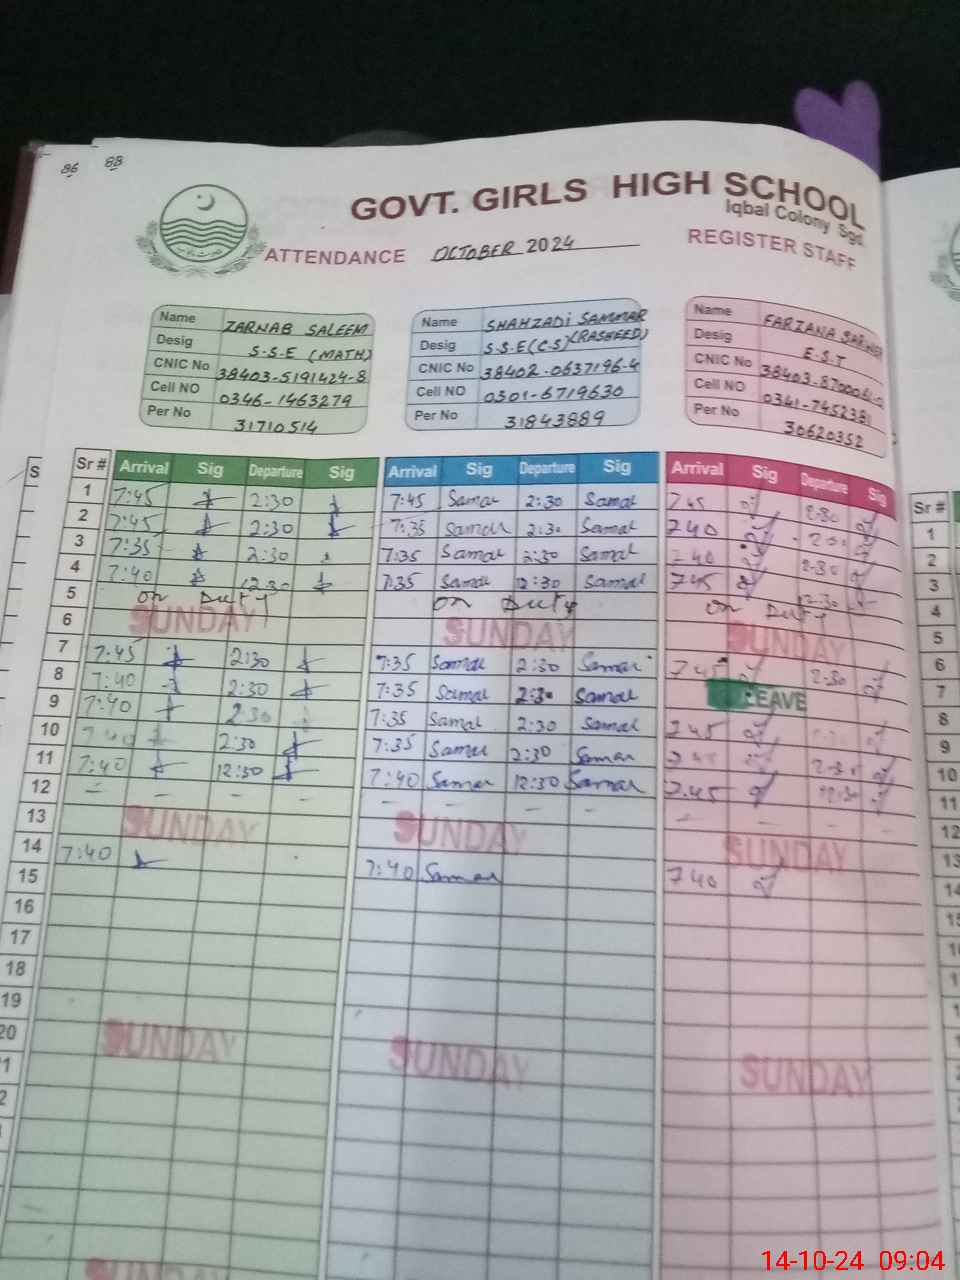 86 88
GOVT. GIRLS HIGH SCHOOL
Iqbal Colony Sgd.
ATTENDANCE OCTOBER 2024 REGISTER STAFF
Name ZARNAB SALEEM
Desig S.S.E (MATH)
CNIC No 38403-5191424-8
Cell NO 0346-1463279
Per No 31710514
Name SHAHZADI SAMMAR (RASHEED)
Desig S.S.E(C.S)
CNIC No 38402-0637196-4
Cell NO 0301-6719630
Per No 31843889
Name FARZANA
Desig E.S.T
CNIC No
Cell NO 0341-7452381
Per No 30620352
Sr # Arrival Sig Departure Sig Arrival Sig Departure Sig Arrival Sig Departure Sig Sr #
1 7:45 2:30 7:45 Samar 2:30 Samar 745 2:30 1
2 7:45 2:30 7:35 Samar 2:30 Samar 740 2:30 2
3 7:35 2:30 7:35 Samar 2:30 Samar 740 2:30 3
4 7:40 12:30 7:35 Samar 12:30 Samar 745 12:30 4
5 on Duty on Duty on Duty 5
6 SUNDAY SUNDAY SUNDAY 6
7 7:45 2:30 7:35 Samar 2:30 Samar 745 2:30 7
8 7:40 2:30 7:35 Samar 2:30 Samar LEAVE 8
9 7:40 2:30 7:35 Samar 2:30 Samar 745 9
10 7:40 2:30 7:35 Samar 2:30 Samar 745 2:30 10
11 7:40 12:30 7:40 Samar 12:30 Samar 7:45 12:30 11
12 - - - - - - - - - - - - 12
13 SUNDAY SUNDAY SUNDAY 13
14 7:40 7:40 Samar 740 14
15
16
17
18
19
20 SUNDAY SUNDAY SUNDAY
SUNDAY
14-10-24 09:04